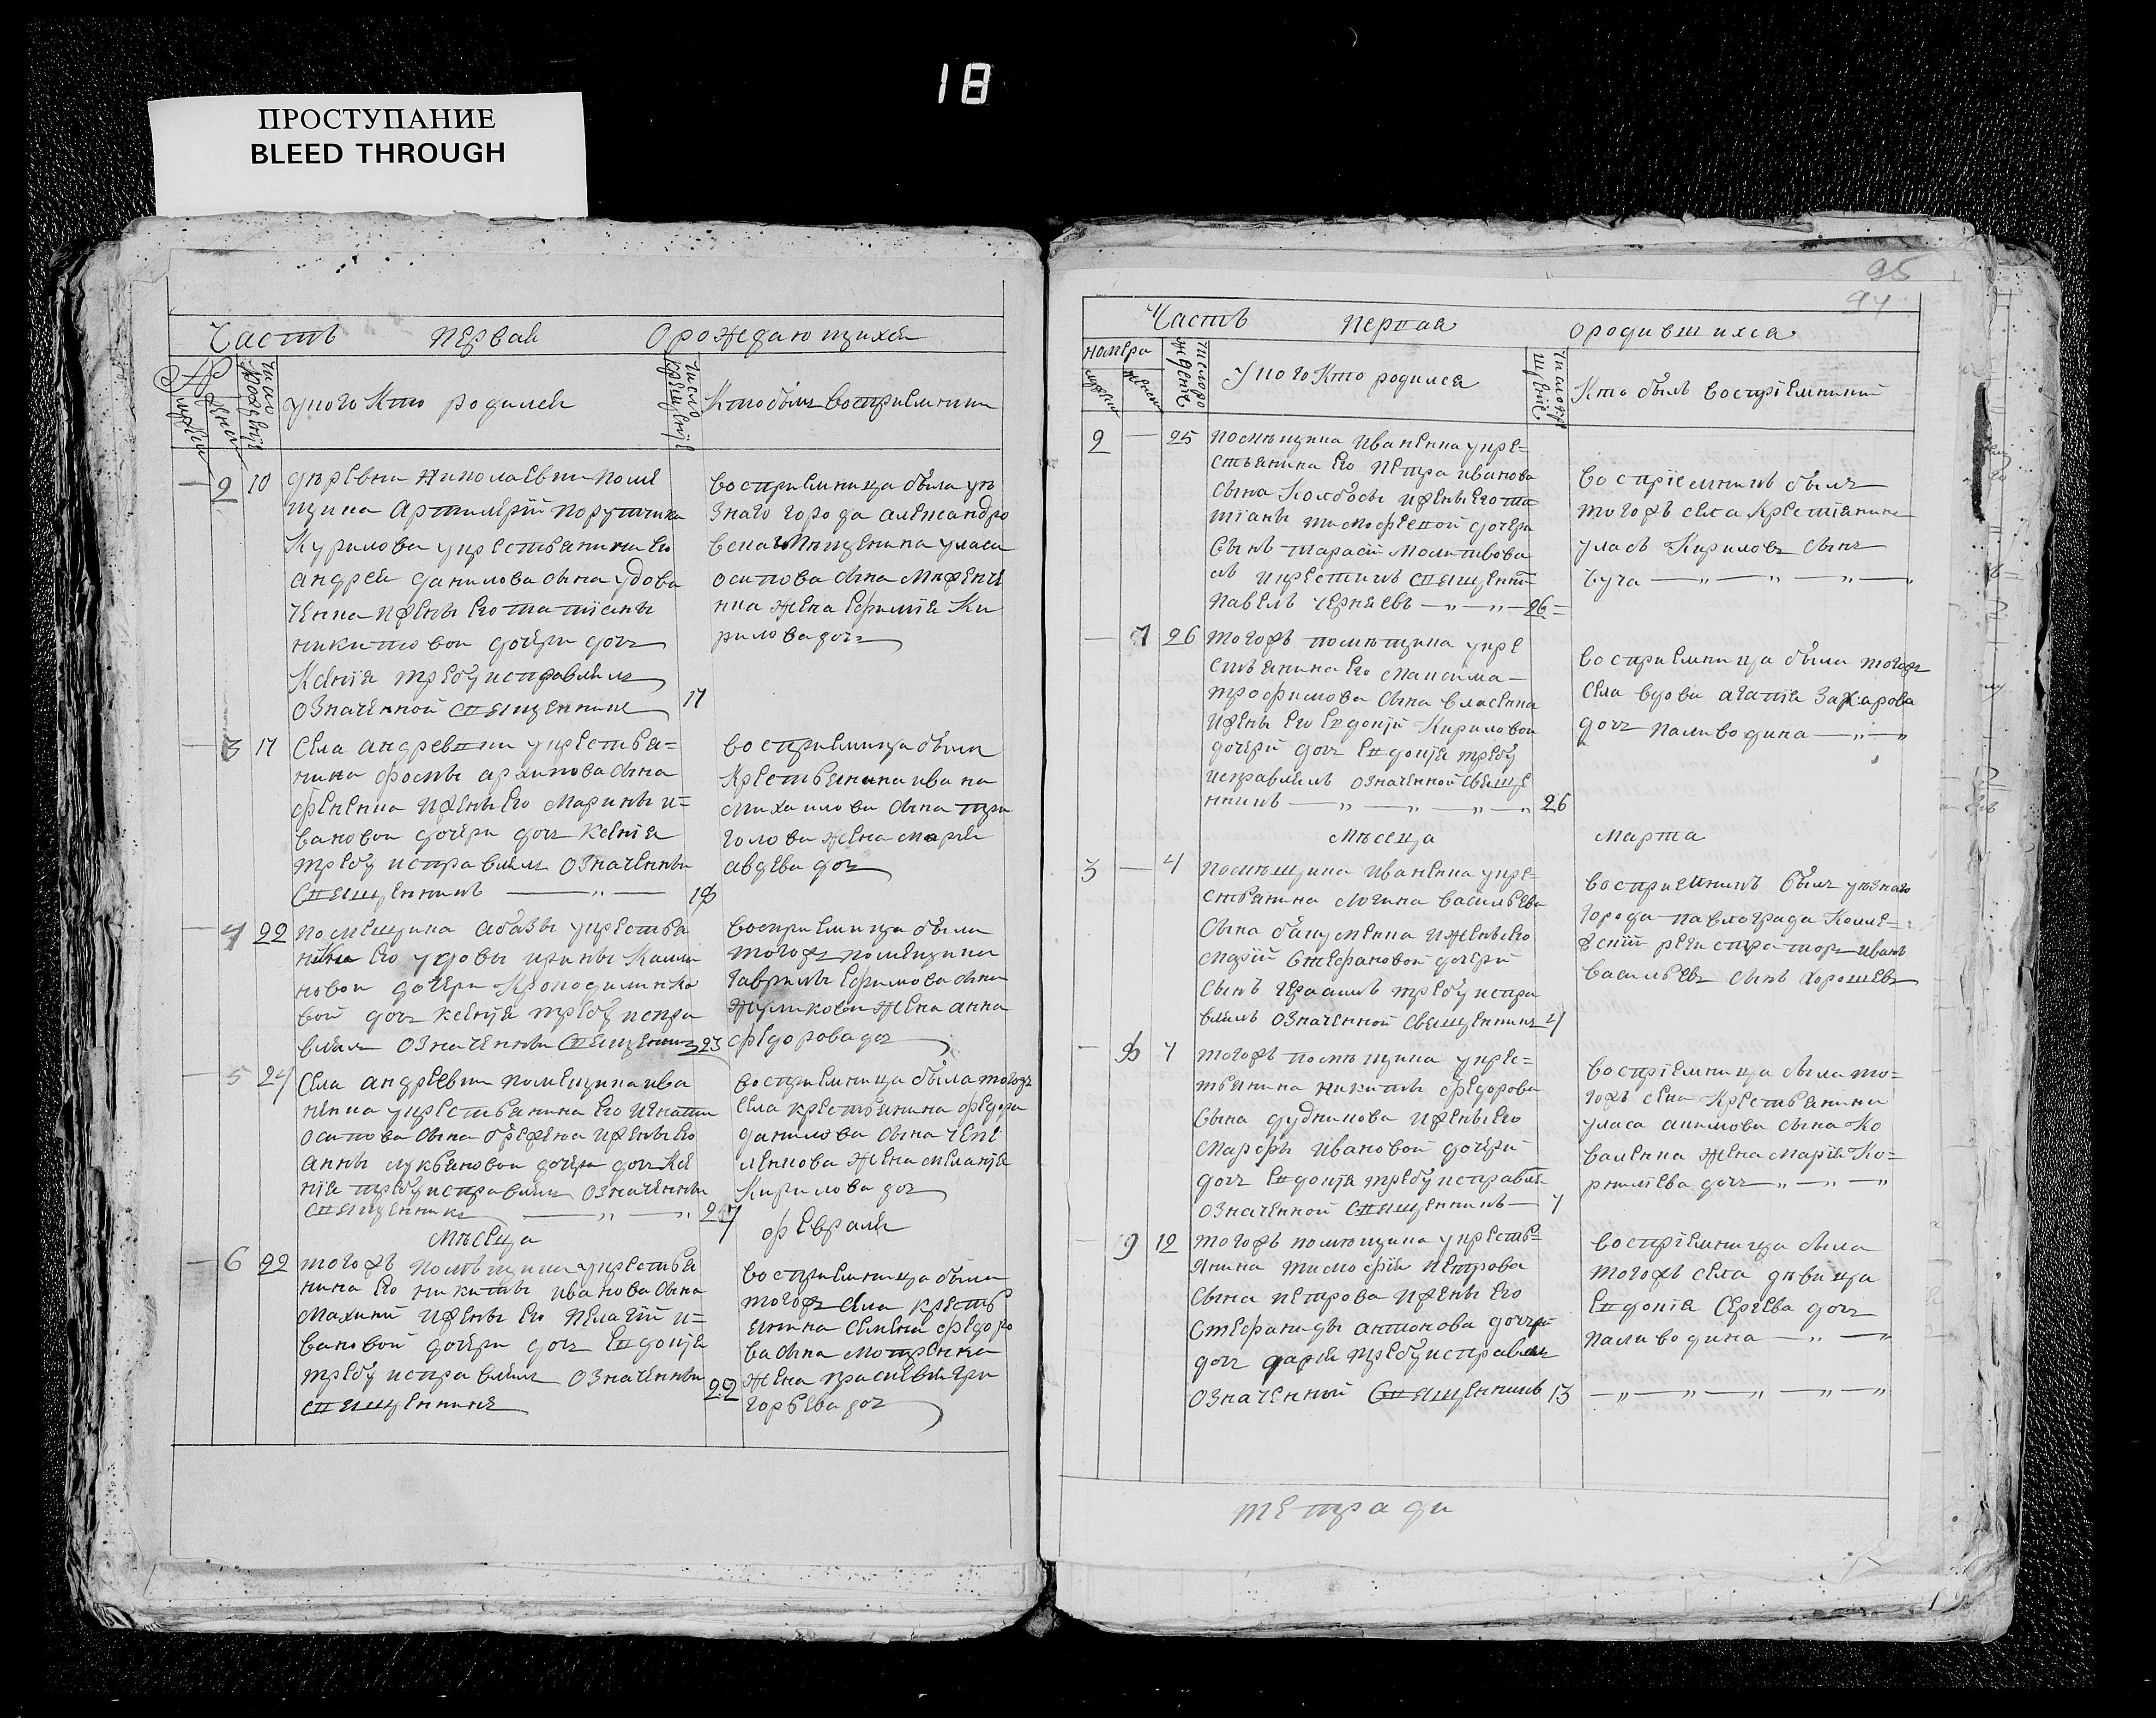 18
ПРОСТУПАНИЕ
BLEED THROUGH
Часть первая Орождающихся
Число рождения
Число крещения
Укого Кто родился
Кто былъ восприемники
2 10 деревни Николаевки поме
щика Артилерїи Порутчика
Курилова укрестьянина Его
андрея данилова сына удови
ченка ижены Его татїаны
никитовои дочери дочъ
Ксенїя требу исправлялъ
означенной священникъ 11
восприемница была уѣ
знаго города александро
вска мѣщанина уласа
осипова сына
жена Ефимїя Ки
рилова дочъ
3 17 Села андревки укрестья=
нина фомы архипова сына
ижены Его Марины и=
вановои дочери дочъ ксенїя
требу исправлялъ означенны
священникъ — „ — 18
восприемница была
Крестьянина ивана
михаилова сына три
голова жена марїя
авдѣева дочъ
4 22 помещика абазы укрестья
Его удовы ирины
новои дочери Крокодилинко
вой дочъ ксенїя требу испра
влялъ означенны священникъ 23
восприемница была
тогожъ помещика
гаврилы Ефимова сына
Жуликова жена анна
федорова дочъ
5 24 Села андреевки помещика ива
ненка укрестьянина Его игнатия
осипова сына ижены Его
анны лукьяновои дочери дочъ ксе
нїя требу исправлялъ означенны
священникъ — „ — „ 27
восприемница была тогожъ
села крестьянина федора
данилова сына чепе
ленкова жена меланїя
Кирилова дочъ
мѣсеца февраля
6 22 тогожъ помѣщика укрестья
нина Его никиты иванова сына
махини ижены Его пелагїи и=
вановой дочери дочъ Евдокїя
требу исправлялъ означенны
священникъ 22
восприемница была
тогожъ села крестъ
янина семена федоро
ва сына мотренка
жена
горьева дочъ
95
94
Часть первая ородившихся
номера
Укого Кто родился
Кто былъ воспрїемникий
2 — 25 помѣщика иваненка укре=
стьянина Его петра иванова
сына Колбасы ижены Его та
тїаны тимофеевой дочери
сынъ тарасїй молитвова
лъ икрестилъ священни
павелъ черняевъ — „ — „ — 26 =
воспрїемникъ былъ
тогожъ села Крестїянинъ
уласъ Кириловъ сынъ
буга — „ — „ — „ — „
7 26 тогожъ помѣщика укре
стьянина Его максима —
трофимова сына власенка
ижены Его Евдокїи Кириловои
дочери дочъ Евдокїя требу
исправлялъ означенной свяще
нникъ — „ — „ — „ — „ 26
восприемница была тогожъ
села вдова агатїя Захарова
дочъ паливодина — „ — „
мѣсеца марта
3 — 4 помѣщика иваненка укре=
стьянина логина васильева
сына ижены Его
марїи стефановой дочери
сынъ герасимъ требу испра
влялъ означенной священникъ 4
восприемникъ былъ уѣзнаго
города павлограда Колле=
жскїй регистраторъ иванъ
васильевъ сынъ хорошевъ
8 7 тогожъ помѣщика укрес=
тьянина никиты федорова
сына дудникова ижены Его
марфы ивановой дочери
дочъ Евдокїя требу исправля
означенной священникъ — 7
воспрїемница была то=
гожъ села Крестьянина
уласа акимова сына Ко
валенка жена марїя Ко=
рнилїева дочъ „ — „ — „
9 12 тогожъ помѣщика укрестьь
янина тимофїя петрова
сына петрова ижены Его
стефаниды антонова дочери
дочъ дарїя требу исправлялъ
означенной священникъ 13
воспрїемница была
тогожъ села дѣвица
Евдокїя Сергѣева дочъ
паливодина — „ — „
— „ — „ — „ — „ — „
тетради